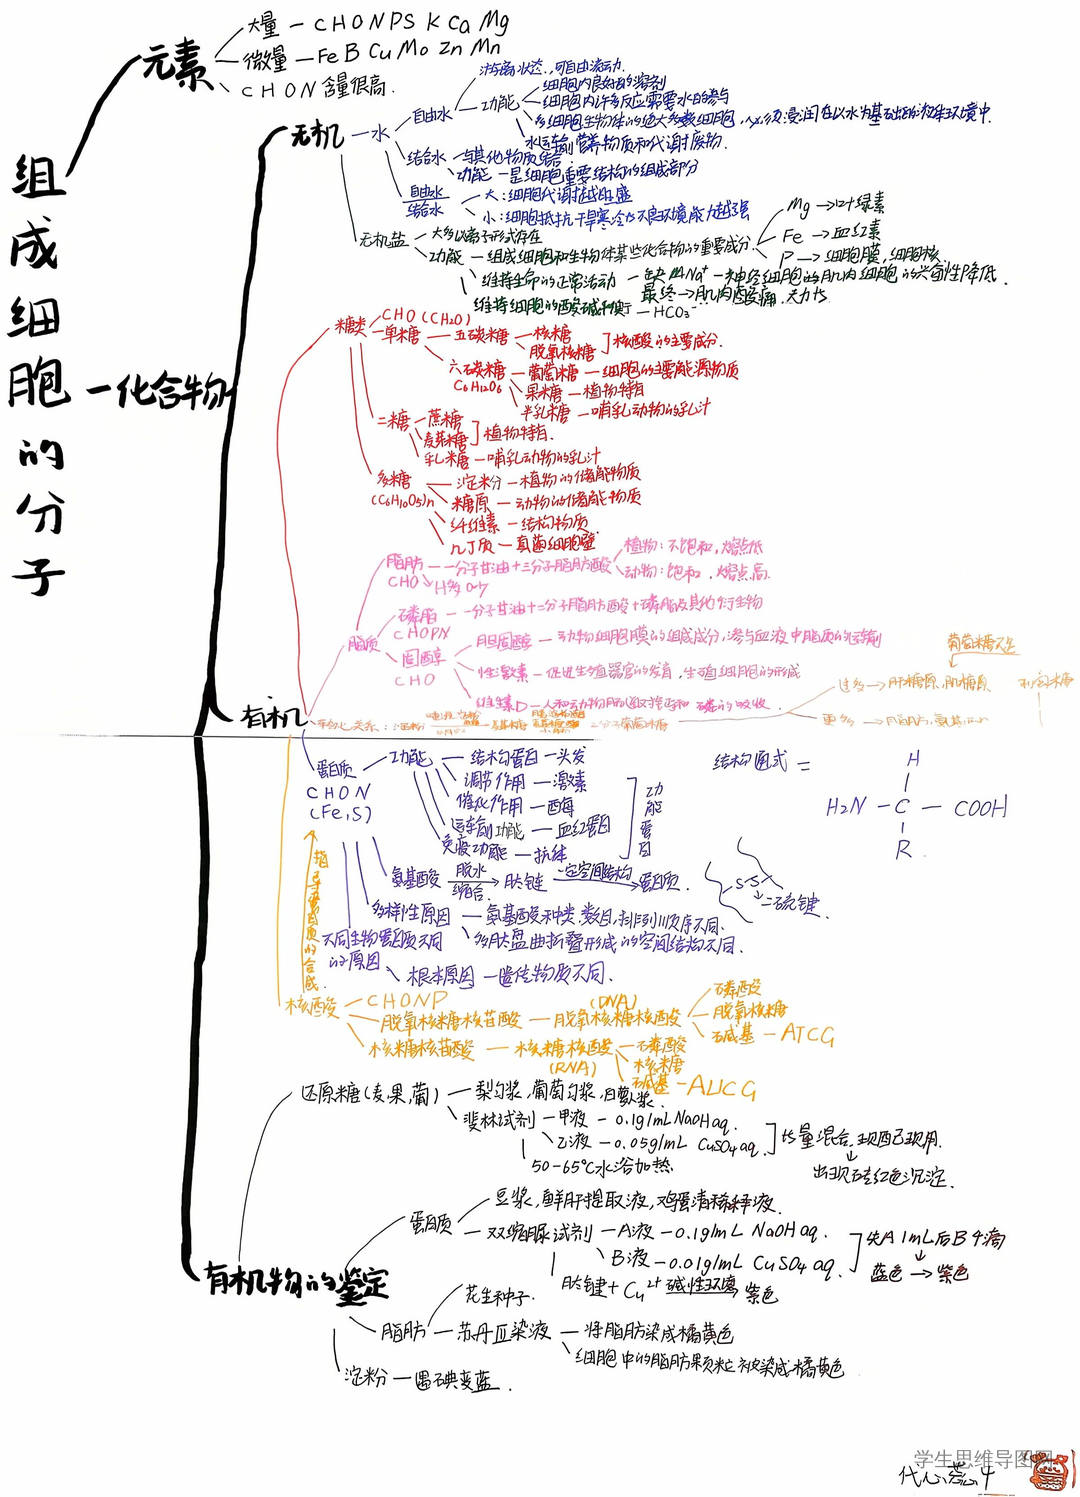 组成细胞的分子
元素
大量 — C H O N P S K Ca Mg
微量 — Fe B Cu Mo Zn Mn
C H O N 含量很高.
一化合物
无机 — 水
自由水
游离状态，可自由流动.
功能
细胞内良好的溶剂
细胞内许多反应需要水的参与
多细胞生物体的绝大多数细胞，必须浸润在以水为基础的液体环境中.
水运输营养物质和代谢废物.
结合水 — 与其他物质结合
功能 — 是细胞重要结构的组成部分
自由水
结合水
大：细胞代谢越旺盛
小：细胞抵抗干旱寒冷等不良环境能力越强
无机盐 — 大多以离子形式存在
功能 — 组成细胞和生物体某些化合物的重要成分
Mg → 叶绿素
Fe → 血红素
P → 细胞膜，细胞核.
维持生命的正常活动 — 缺Na⁺ — 神经细胞的肌肉细胞的兴奋性降低.
最终 → 肌肉酸痛，无力等
维持细胞的酸碱平衡 — HCO₃⁻
糖类 CHO (CH₂O)
单糖 — 五碳糖 — 核糖
脱氧核糖 ] 核酸的主要成分.
六碳糖 — 葡萄糖 — 细胞的主要能源物质
C₆H₁₂O₆ 果糖 — 植物特有
半乳糖 — 哺乳动物的乳汁
二糖 — 蔗糖
麦芽糖 ] 植物特有.
乳糖 — 哺乳动物的乳汁
多糖 — 淀粉 — 植物的储能物质
(C₆H₁₀O₅)n 糖原 — 动物的储能物质
纤维素 — 结构物质
几丁质 — 真菌细胞壁
脂质
脂肪 — 一分子甘油+三分子脂肪酸
植物：不饱和，熔点低
动物：饱和，熔点高.
CHO → H多O少
磷脂 — 一分子甘油+二分子脂肪酸+磷脂及其他衍生物
CHOPN
固醇
CHO
胆固醇 — 动物细胞膜的组成成分，参与血液中脂质的运输
性激素 — 促进生殖器官的发育，生殖细胞的形成
维生素D — 人和动物肠道对钙和磷的吸收.
有机
转化关系：淀粉
二分子葡萄糖
过多 → 肝糖原，肌糖原
更多 → 脂肪，氨基
蛋白质
C H O N
(Fe, S)
功能 — 结构蛋白 — 头发
调节作用 — 激素
催化作用 — 酶
运输功能 — 血红蛋白
免疫功能 — 抗体
功能蛋白
结构通式 =
H
H₂N — C — COOH
R.
氨基酸 脱水缩合 → 肽链 一定空间结构 → 蛋白质.
-S-S- 二硫键.
多样性原因 — 氨基酸种类，数目，排列顺序不同.
多肽盘曲折叠形成的空间结构不同.
不同生物蛋白质不同
的原因
根本原因 — 遗传物质不同.
指导蛋白质的合成.
核酸 — C H O N P
脱氧核糖核苷酸 — 脱氧核糖核酸
(DNA)
磷酸
脱氧核糖
碱基 — ATCG
核糖核苷酸 — 核糖核酸
(RNA)
磷酸
核糖
碱基 — AUCG
有机物的鉴定
还原糖(麦,果,葡) — 梨匀浆，葡萄匀浆，白萝卜浆.
斐林试剂 — 甲液 — 0.1g/mL NaOH aq.
乙液 — 0.05g/mL CuSO₄ aq.
] 等量混合,现配现用.
出现砖红色沉淀.
50-65℃水浴加热
蛋白质
豆浆，鲜肝提取液，鸡蛋清稀释液.
双缩脲试剂 — A液 — 0.1g/mL NaOH aq.
B液 — 0.01g/mL CuSO₄ aq.
] 先A 1mL后B 4滴
蓝色 → 紫色
肽键 + Cu²⁺ 碱性环境 紫色
花生种子.
脂肪 — 苏丹Ⅲ染液 — 将脂肪染成橘黄色
细胞中的脂肪颗粒被染成橘黄色
淀粉 — 遇碘变蓝.
学生思维导图网